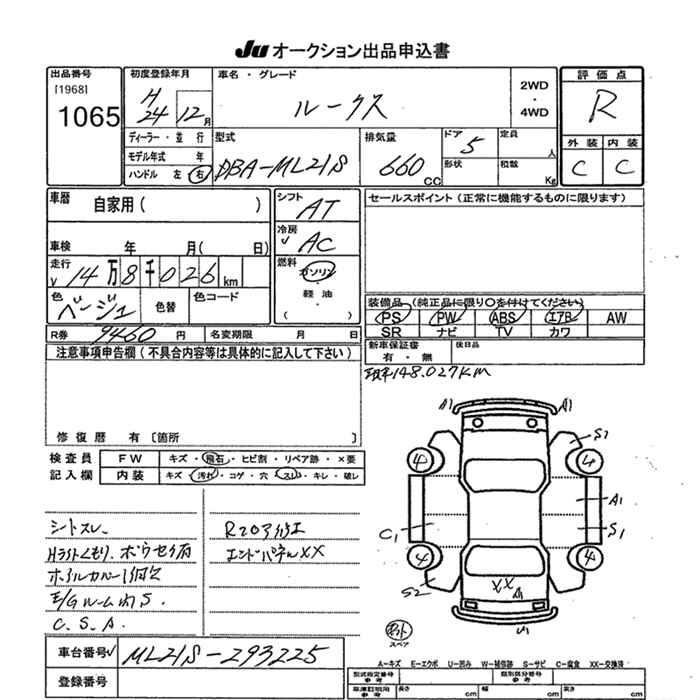 Ju オークション出品申込書
出品番号
[1968]
1065
初度登録年月
H
24 12月
車名・グレード
ルークス
2WD
・
4WD
評価点
R
外装 内装
C C
ディーラー・並行
モデル年式 年
ハンドル 左 右
型式
DBA-ML21S
排気量
660 CC
ドア
5
形状
定員
人
積数
Kg
車歴
自家用( )
シフト
AT
セールスポイント(正常に機能するものに限ります)
冷房
AC
車検 年 月( 日)
走行
14万8千026km
燃料
ガソリン
・
軽油
( )
色
ベージュ
色替
色コード
装備品(純正品に限り○を付けてください)
PS PW ABS エアB AW
SR ナビ TV カワ
R券 9460 円
名変期限 月 日
新車保証書
有・無
後日品
注意事項申告欄(不具合内容等は具体的に記入して下さい)
現車148.027KM
修復歴 有〔箇所 〕
検査員
記入欄
FW キズ・飛石・ヒビ割・リペア跡・×要
内装 キズ・汚れ・コゲ・穴・スレ・キレ・破レ
A1 A1
S1
4 4
A1
C1 S1
4 4
S2
XX A1
スペア
シートスレ
Hライトくもり、ボウセイ有
ホイルカバー1個欠
E/Gルーム内S.
C.S.A.
Rフロア修正
エンドパネルXX
車台番号 ML21S-293225
登録番号
A-キズ E-エクボ U-凹み W-補修跡 S-サビ C-腐食 XX-交換済
型式指定番号
参考
類別区分番号
参考
車庫証明用
参考
長さ cm 幅 cm 高さ cm